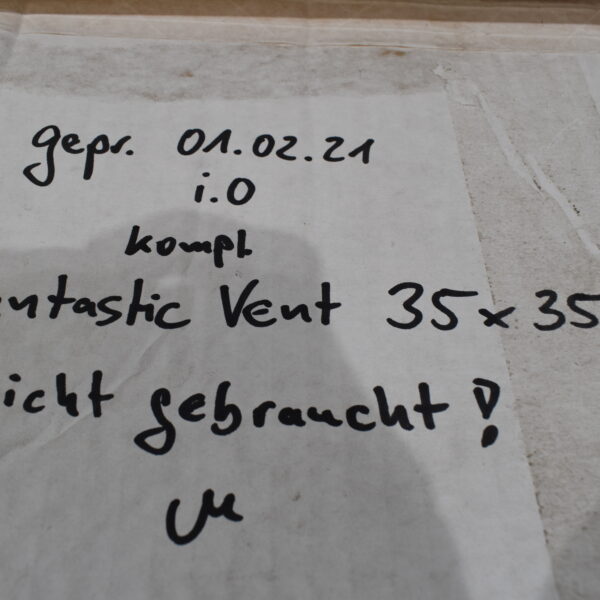 gepr. 01.02.21
i.O
kompl.
entastic Vent 35x35
icht gebraucht!